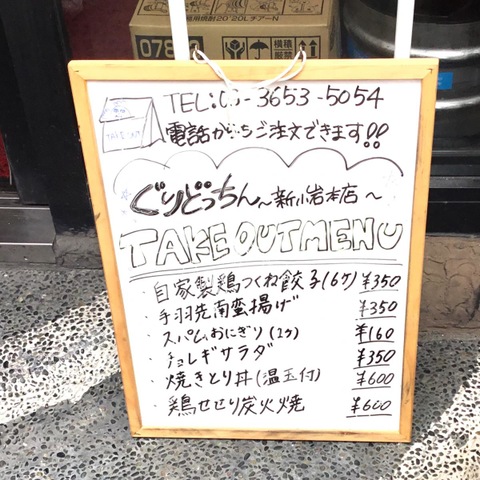 078
20'20LチアーN
横積
厳禁
TEL:03-3653-5054
電話からもご注文できます!!
TAKE OUT
ぐりどっちん~新小岩本店~
TAKE OUT MENU
・自家製鶏つくね餃子(6ケ) ¥350
・手羽先南蛮揚げ ¥350
・スパムおにぎり(2ケ) ¥160
・チョレギサラダ ¥350
・焼きとり丼(温玉付) ¥600
・鶏せせり炭火焼 ¥600